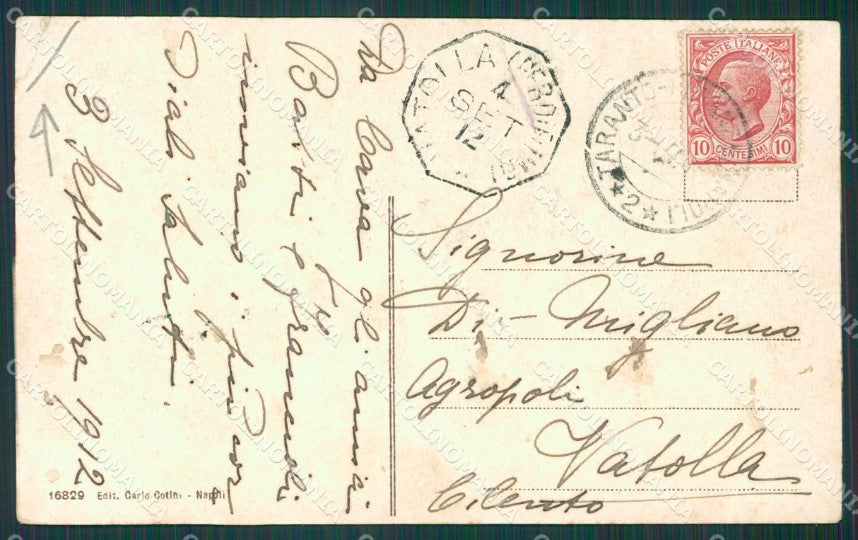 Da Cava gli amici
Basti e Grancioli
inviano i più cor
diali saluti.
3 Settembre 1912
NATOLLA
4
SET
12
TARANTO-
NAPOLI
* 2 *
POSTE ITALIANE
10 CENTESIMI 10
Signorine
Di - Migliano
Agropoli
Vatolla
Cilento
16829 Edit. Carlo Cotini - Napoli
CARTOLINOMANIA